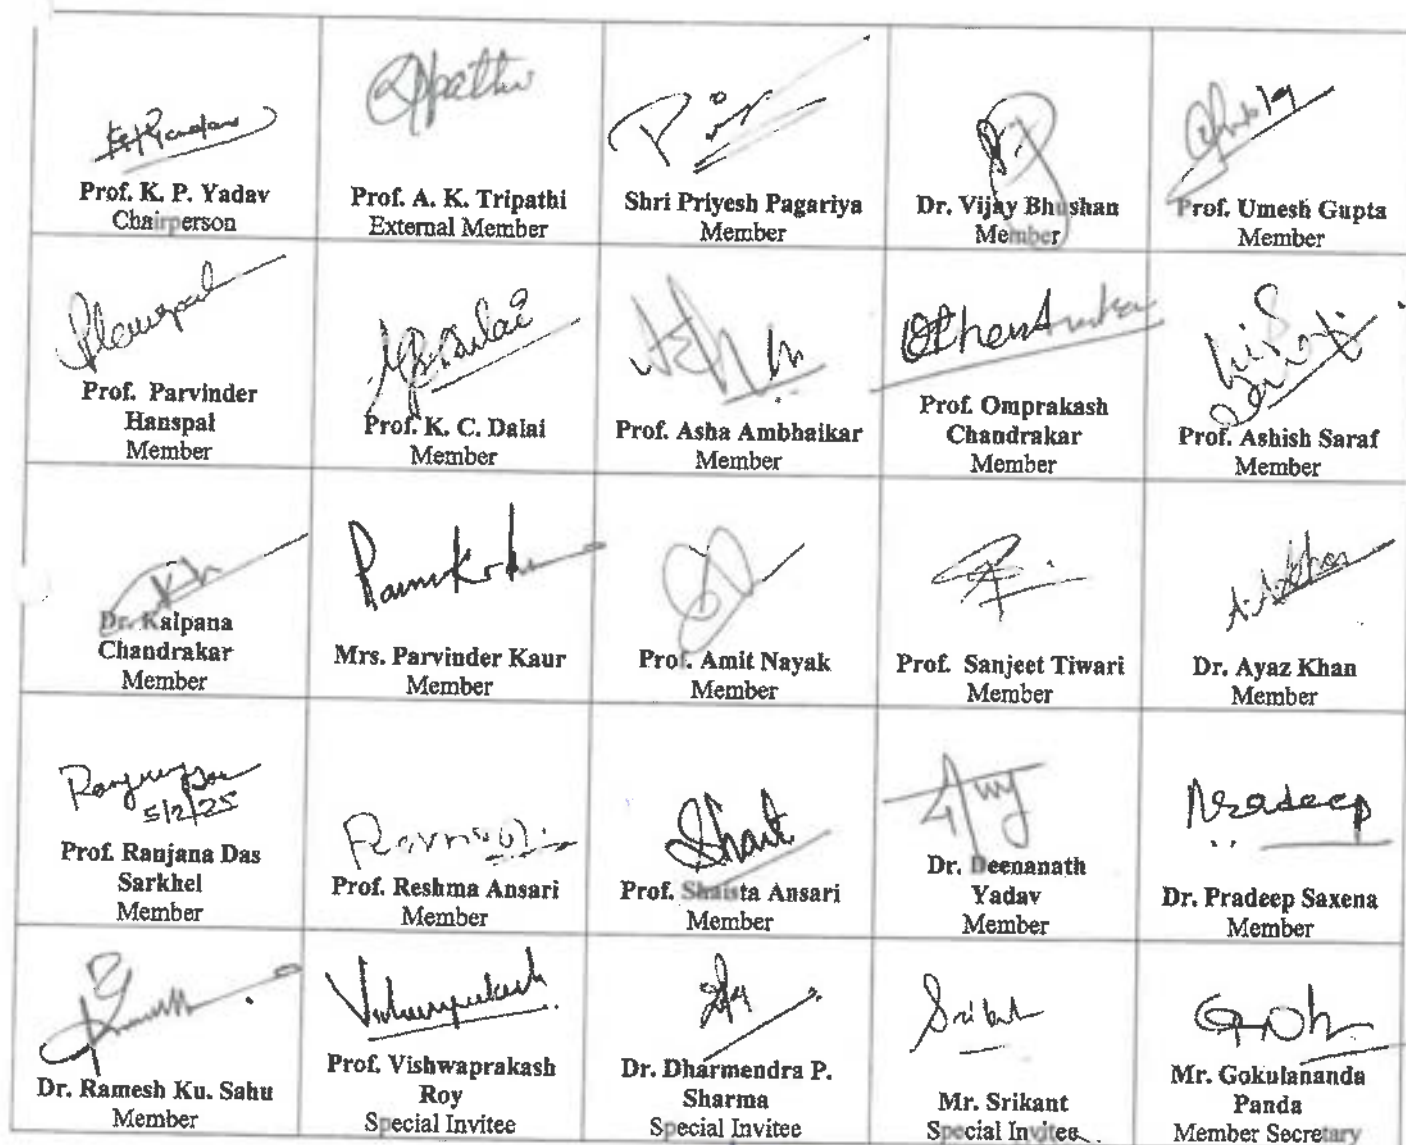 Prof. K. P. Yadav
Chairperson
Prof. A. K. Tripathi
External Member
Shri Priyesh Pagariya
Member
Dr. Vijay Bhushan
Member
Prof. Umesh Gupta
Member
Prof. Parvinder
Hanspal
Member
Prof. K. C. Dalai
Member
Prof. Asha Ambhaikar
Member
Prof. Omprakash
Chandrakar
Member
Prof. Ashish Saraf
Member
Dr. Kalpana
Chandrakar
Member
Mrs. Parvinder Kaur
Member
Prof. Amit Nayak
Member
Prof. Sanjeet Tiwari
Member
Dr. Ayaz Khan
Member
5/2/25
Prof. Ranjana Das
Sarkhel
Member
Prof. Reshma Ansari
Member
Prof. Shaista Ansari
Member
Dr. Deenanath
Yadav
Member
Pradeep
Dr. Pradeep Saxena
Member
Dr. Ramesh Ku. Sahu
Member
Prof. Vishwaprakash
Roy
Special Invitee
Dr. Dharmendra P.
Sharma
Special Invitee
Mr. Srikant
Special Invitee
Mr. Gokulananda
Panda
Member Secretary